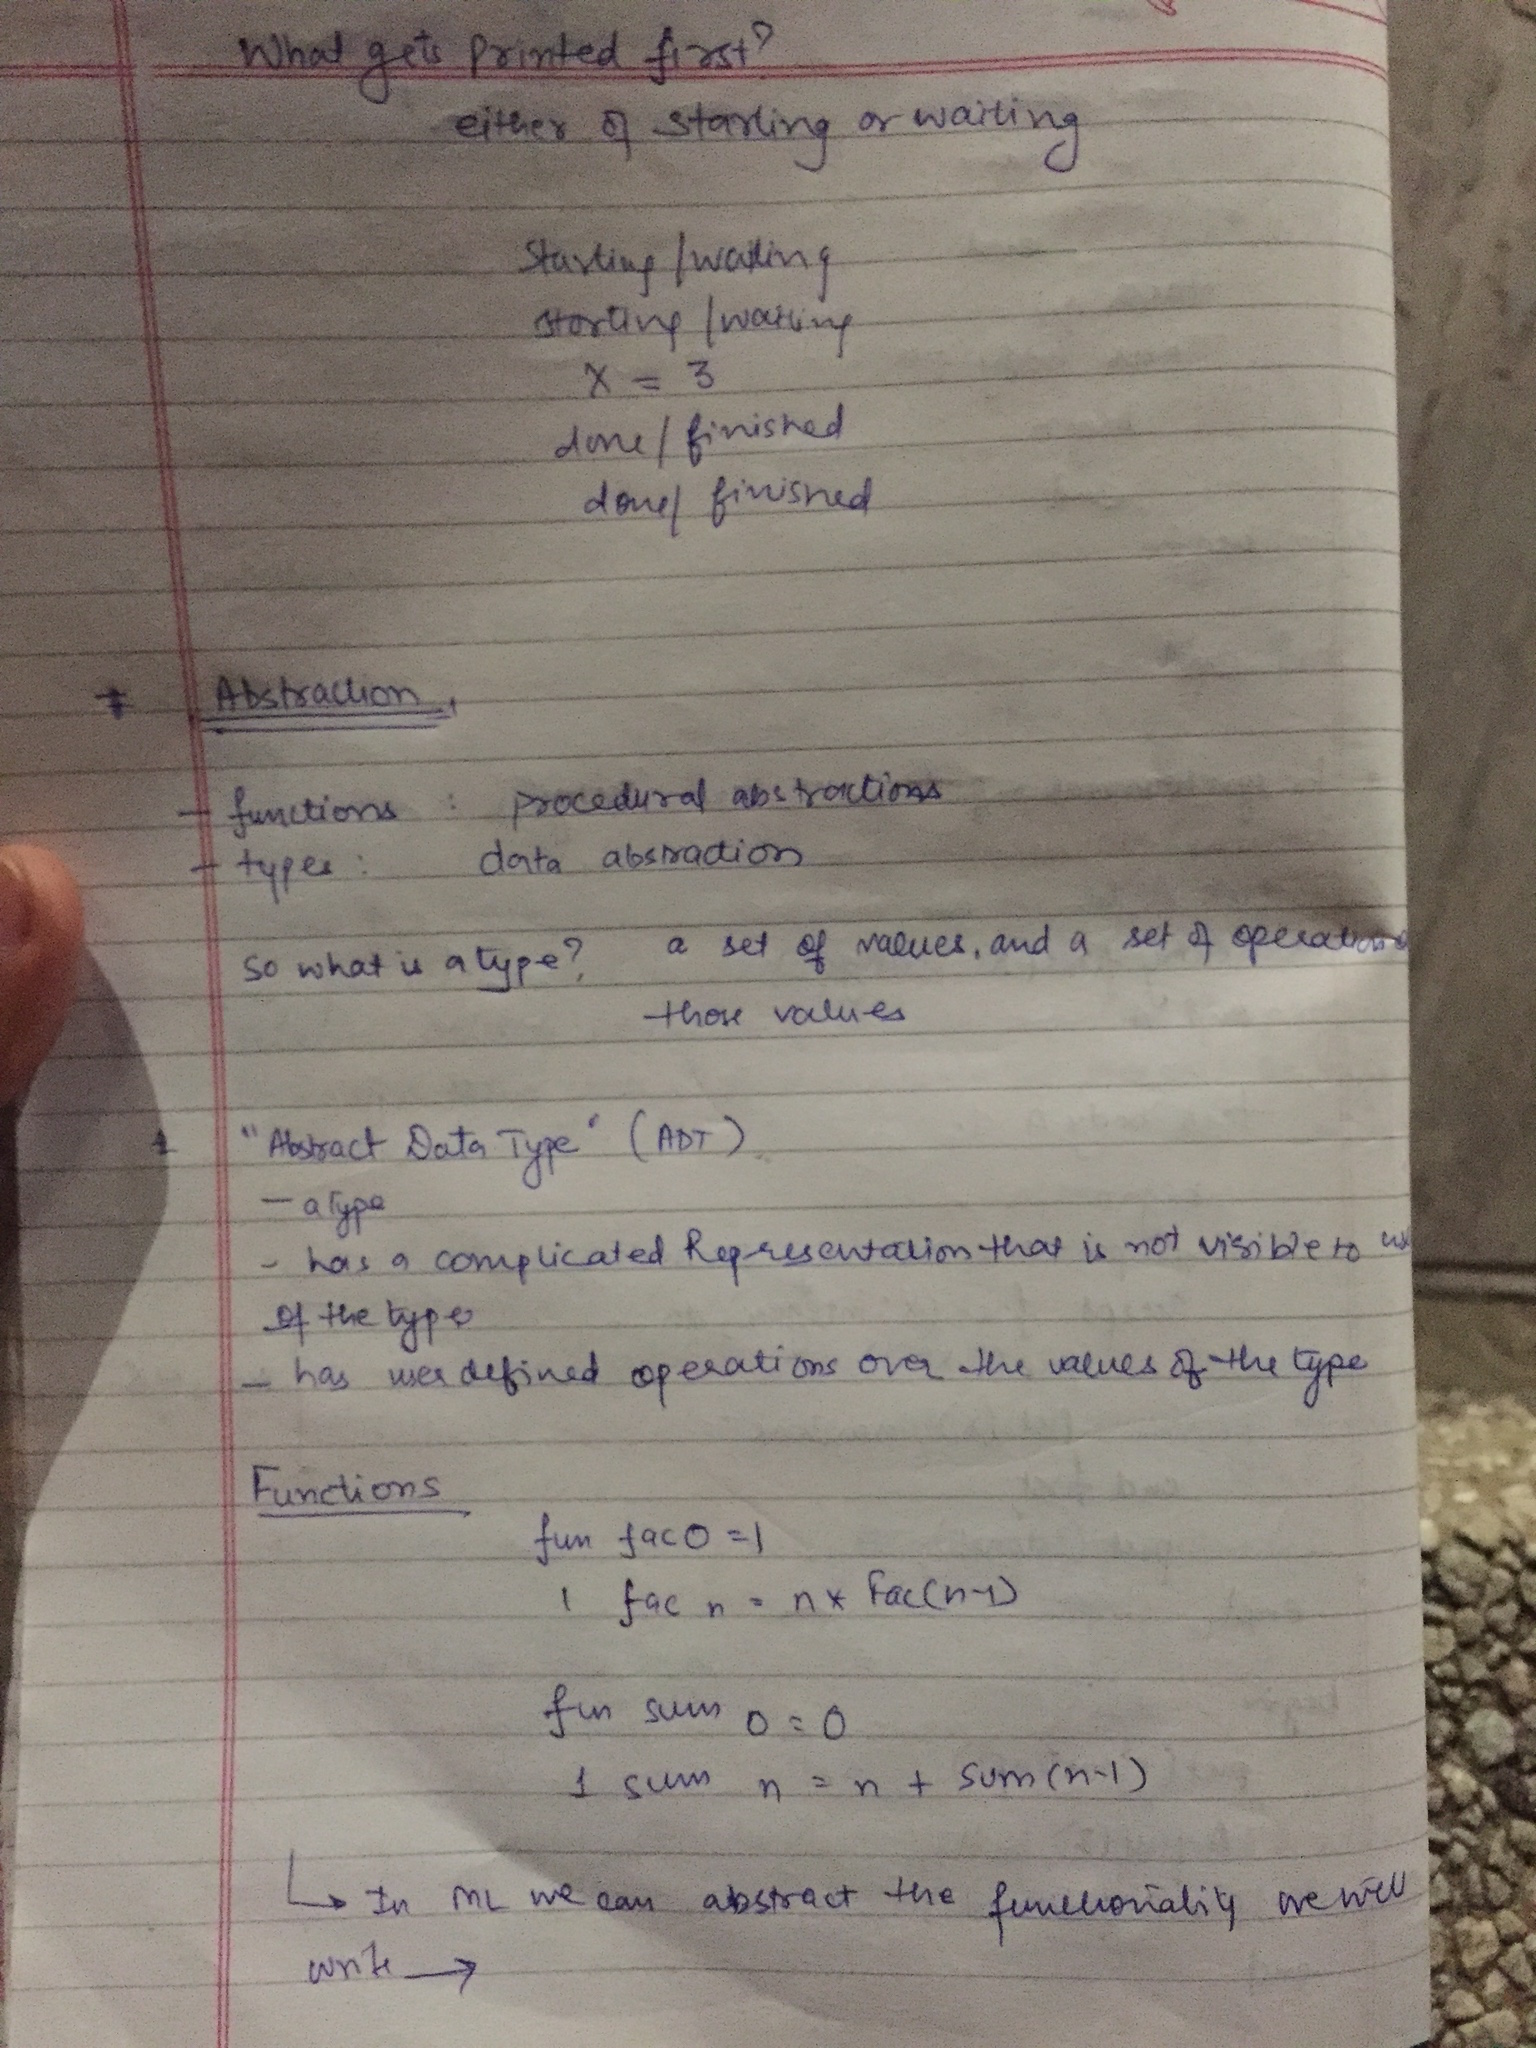 What gets printed first?
either of starting or waiting
Starting / waiting
starting / waiting
X = 3
done / finished
done / finished
* Abstraction
- functions : procedural abstractions
- types : data abstraction
so what is a type? a set of values, and a set of operations
those values
"Abstract Data Type" (ADT)
- a type
- has a complicated Representation that is not visible to us
of the type
- has user defined operations over the values of the type
Functions
fun fac 0 = 1
| fac n = n * Fac(n-1)
fun sum 0 = 0
| sum n = n + sum(n-1)
↳ In ML we can abstract the functionality we will
write →